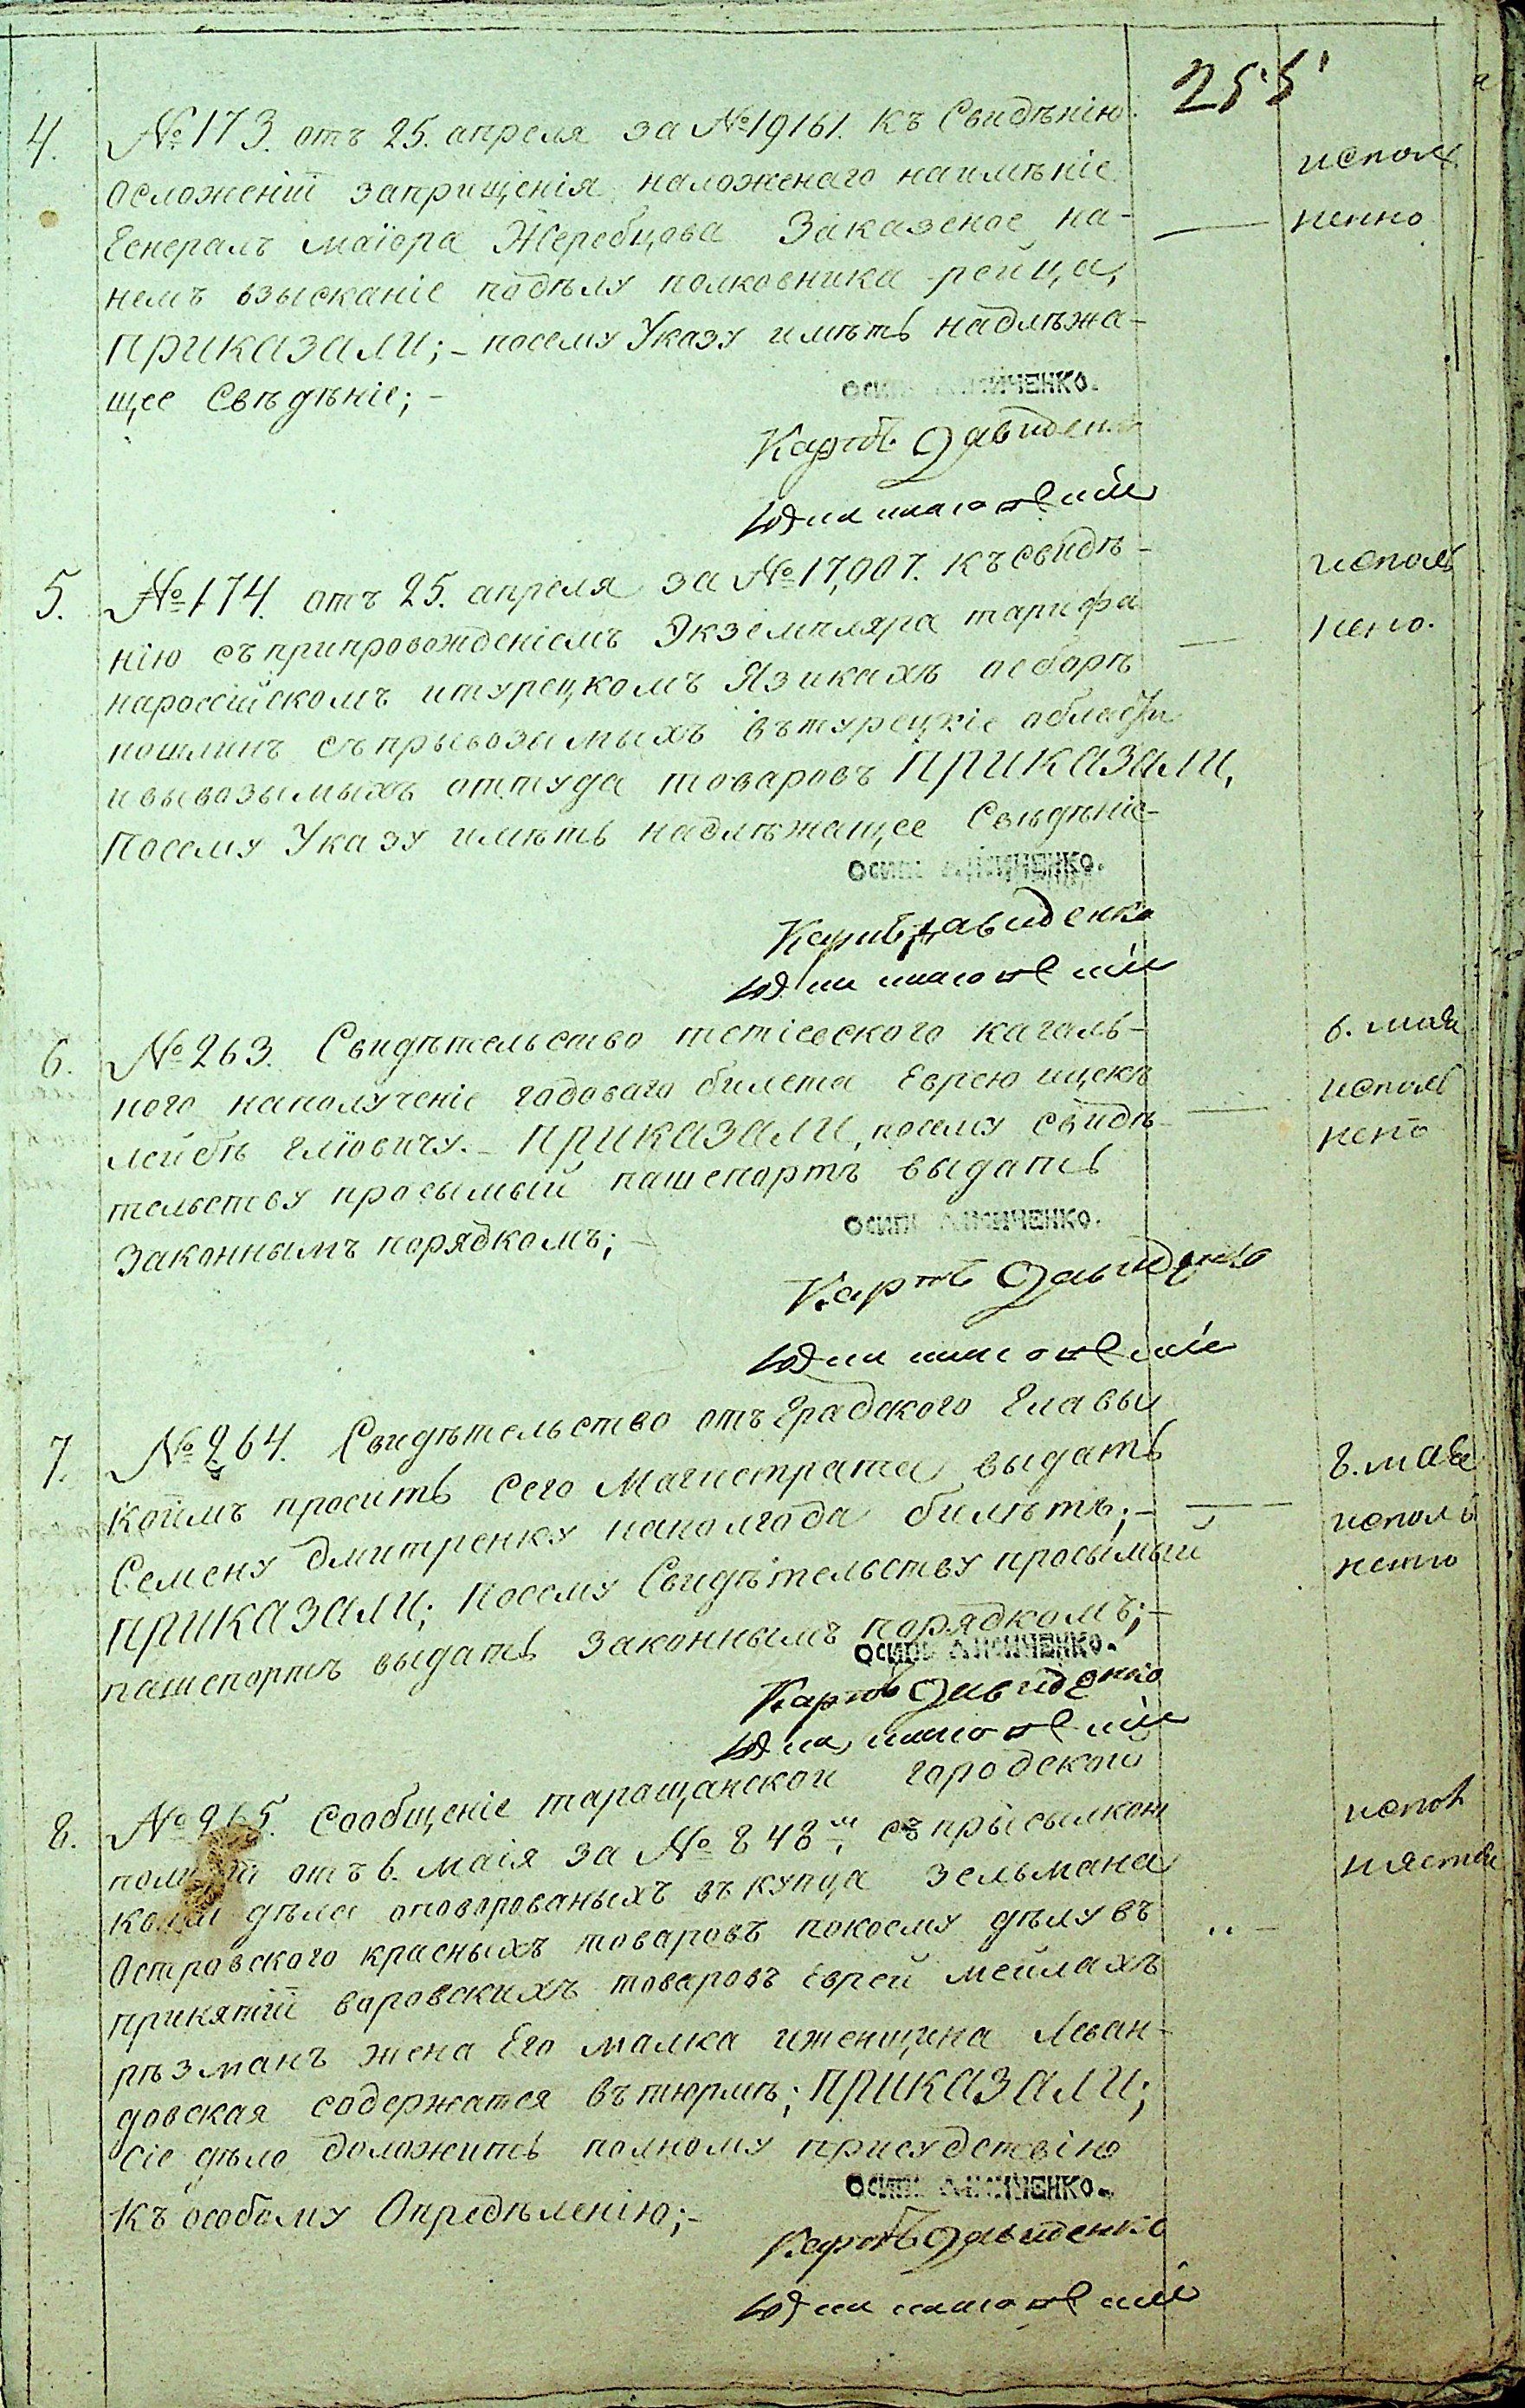 255
4. №173. отъ 25. апреля за №19161. къ Свидѣнію.
осложеніи заприщенія наложенаго наимѣніе
Генералъ маіора Жеребцова Заказеное на-
немъ взысканіе подѣлу полковника рейца,
приказали;- посему Указу имѣть надлѣжа-
щее Свѣдѣніе;-
исполъ
ненно
осипъ ЧЕНКО.
Карпъ Давиденко
5. №174. отъ 25. апреля за №17,007. къ свидѣ-
нію съ припровожденіемъ Экземпляра тарифа
нароссійскомъ итурецкомъ Языкахъ осборѣ
пошлинъ съ прывозымыхъ вътурецкіе области
ивывозымыхъ оттуда товаровъ приказали,
Посему Указу имѣть надлѣжащее Свѣдѣніе-
исполъ
нено.
осипъ ЧЕНКО.
Карпъ Давиденко
6. №263. Свидѣтельство тетіевского кагаль-
ного наполученіе годоваго билета Еврею ицекъ
лейбѣ Еліовичу.- приказали, посему свидѣ-
тельству просымый пашепортъ выдать
законнымъ порядкомъ;-
6. мая
исполъ
нено
осипъ ЧЕНКО.
Карпъ Давиденко
7. №264. Свидѣтельство отъ Градского Главы
коимъ просить Сего Магистрата выдать
Семену Дмитренку наполгода билѣтъ;-
приказали; Посему Свидѣтельству просымый
пашепортъ выдать законнымъ порядкомъ;-
8. мая
исполъ
нено
осипъ ЧЕНКО.
Карпъ Давиденко
8. №265. Сообщеніе таращанской городской
полиціи отъ 6. маія за №848м, съ прысылкою
коіи дѣла оповорованыхъ въ купца Зельмана
Островского красныхъ товаровъ покоему дѣлу въ
принятіи воровскихъ товаровъ Еврей мейлахъ
рѣзманъ жена Его малка иженщина Леван-
довская содержатся въ тюрмѣ; приказали;
сіе дѣло Доложить полному присудствію
къ особому Опредѣленію;-
осипъ ЧЕНКО.
Карпъ Давиденко